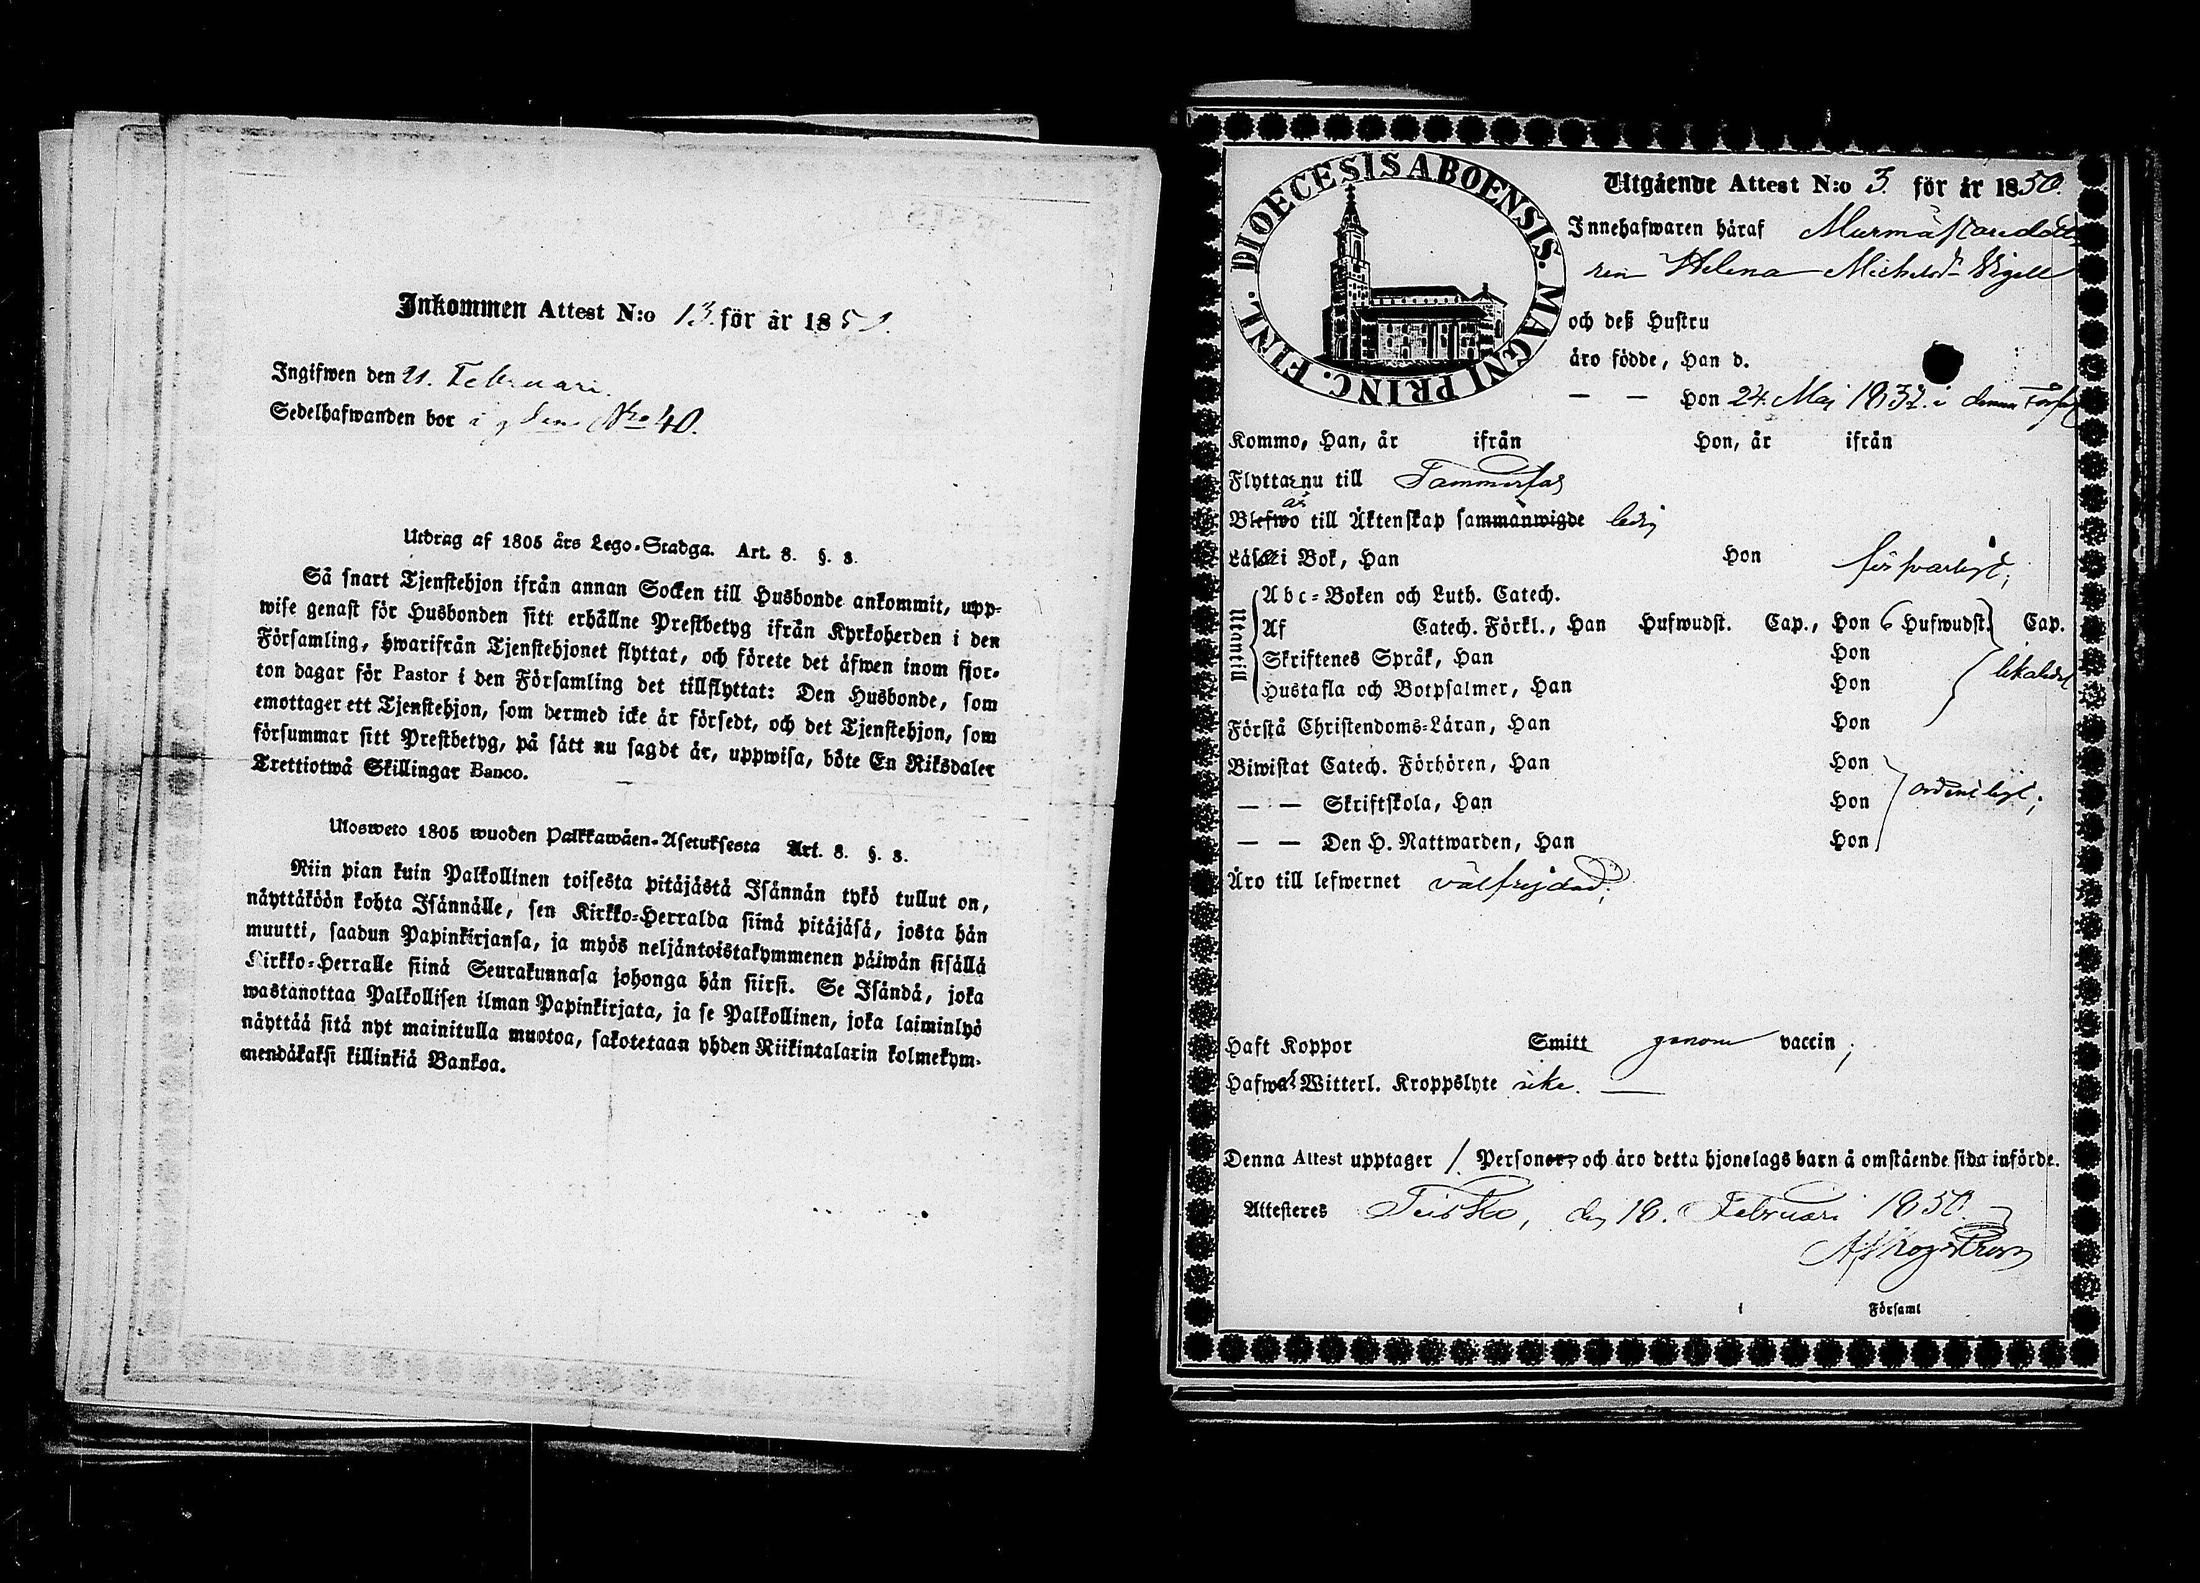 Inkommen Attest N:o 13. för år 185
Ingifwen den 21. Februari.
Sedelhafwanden bor i Nro 40.
Utdrag af 1805 års Lego-Stadga. Art. 8. §. 3.
Så snart Tjenstehjon ifrån annan Socken till Husbonde ankommit, upp-
wise genast för Husbonden sitt erhållne Prestbetyg ifrån Kyrkoherden i den
Församling, hwarifrån Tjenstehjonet flyttat, och förete det äfwen inom fjor-
ton dagar för Pastor i den Församling det tillflyttat: Den Husbonde, som
emottager ett Tjenstehjon, som dermed icke är försedt, och det Tjenstehjon, som
försummar sitt Prestbetyg, på sätt nu sagdt är, uppwisa, böte En Riksdaler
Trettiotwå Skillingar Banco.
Ulosweto 1805 wuoden Palkkawäen-Asetuksesta Art. 8. §. 3.
Niin pian kuin Palkollinen toisesta pitäjästä Isännän tykö tullut on,
näyttäköön kohta Isännälle, sen Kirkko-Herralda siinä pitäjäsä, josta hän
muutti, saadun Papinkirjansa, ja myös neljäntoistakymmenen päiwän sisällä
Kirkko-Herralle siinä Seurakunnasa johonga hän siirsi. Se Isändä, joka
wastanottaa Palkollisen ilman Papinkirjata, ja se Palkollinen, joka laiminlyö
näyttää sitä nyt mainitulla muotoa, sakotetaan yhden Riikintalarin kolmekym-
mendäkaksi killinkiä Bankoa.
DIOECESIS ABOENSIS. MAGNI PRINC. FINL.
Utgående Attest N:o 3. för år 1850.
Innehafwaren häraf Murmästaredott
ren Helena Michelsdr Wigell
och deß Hustru
äro födde, Han d.
— — Hon 24. Maj 1832. i denna Förs
Kommo, Han, år ifrån Hon, år ifrån
Flyttar nu till Tammerfors
är
Blefwo till Äktenskap sammanwigde ledig
Läser i Bok, Han Hon försvarligt;
Utantill
Abc-Boken och Luth. Catech.
Af Catech. Förkl., Han Hufwudst. Cap., Hon 6 Hufwudst. Cap.
Skriftenes Språk, Han Hon
likaledes
Hustafla och Botpsalmer, Han Hon
Förstå Christendoms-Läran, Han Hon
Biwistat Catech. Förhören, Han Hon
— — Skriftskola, Han Hon ordentligt;
— — Den H. Nattwarden, Han Hon
Äro till lefwernet välfrejdad;
Haft Koppor Smitt genom vaccin;
Hafwa Witterl. Kroppslyte icke. —
Denna Attest upptager 1. Personer, och äro detta hjonelags barn å omstående sida införde.
Attesteres Teisko, den 18. Februari 1850.
i Församl